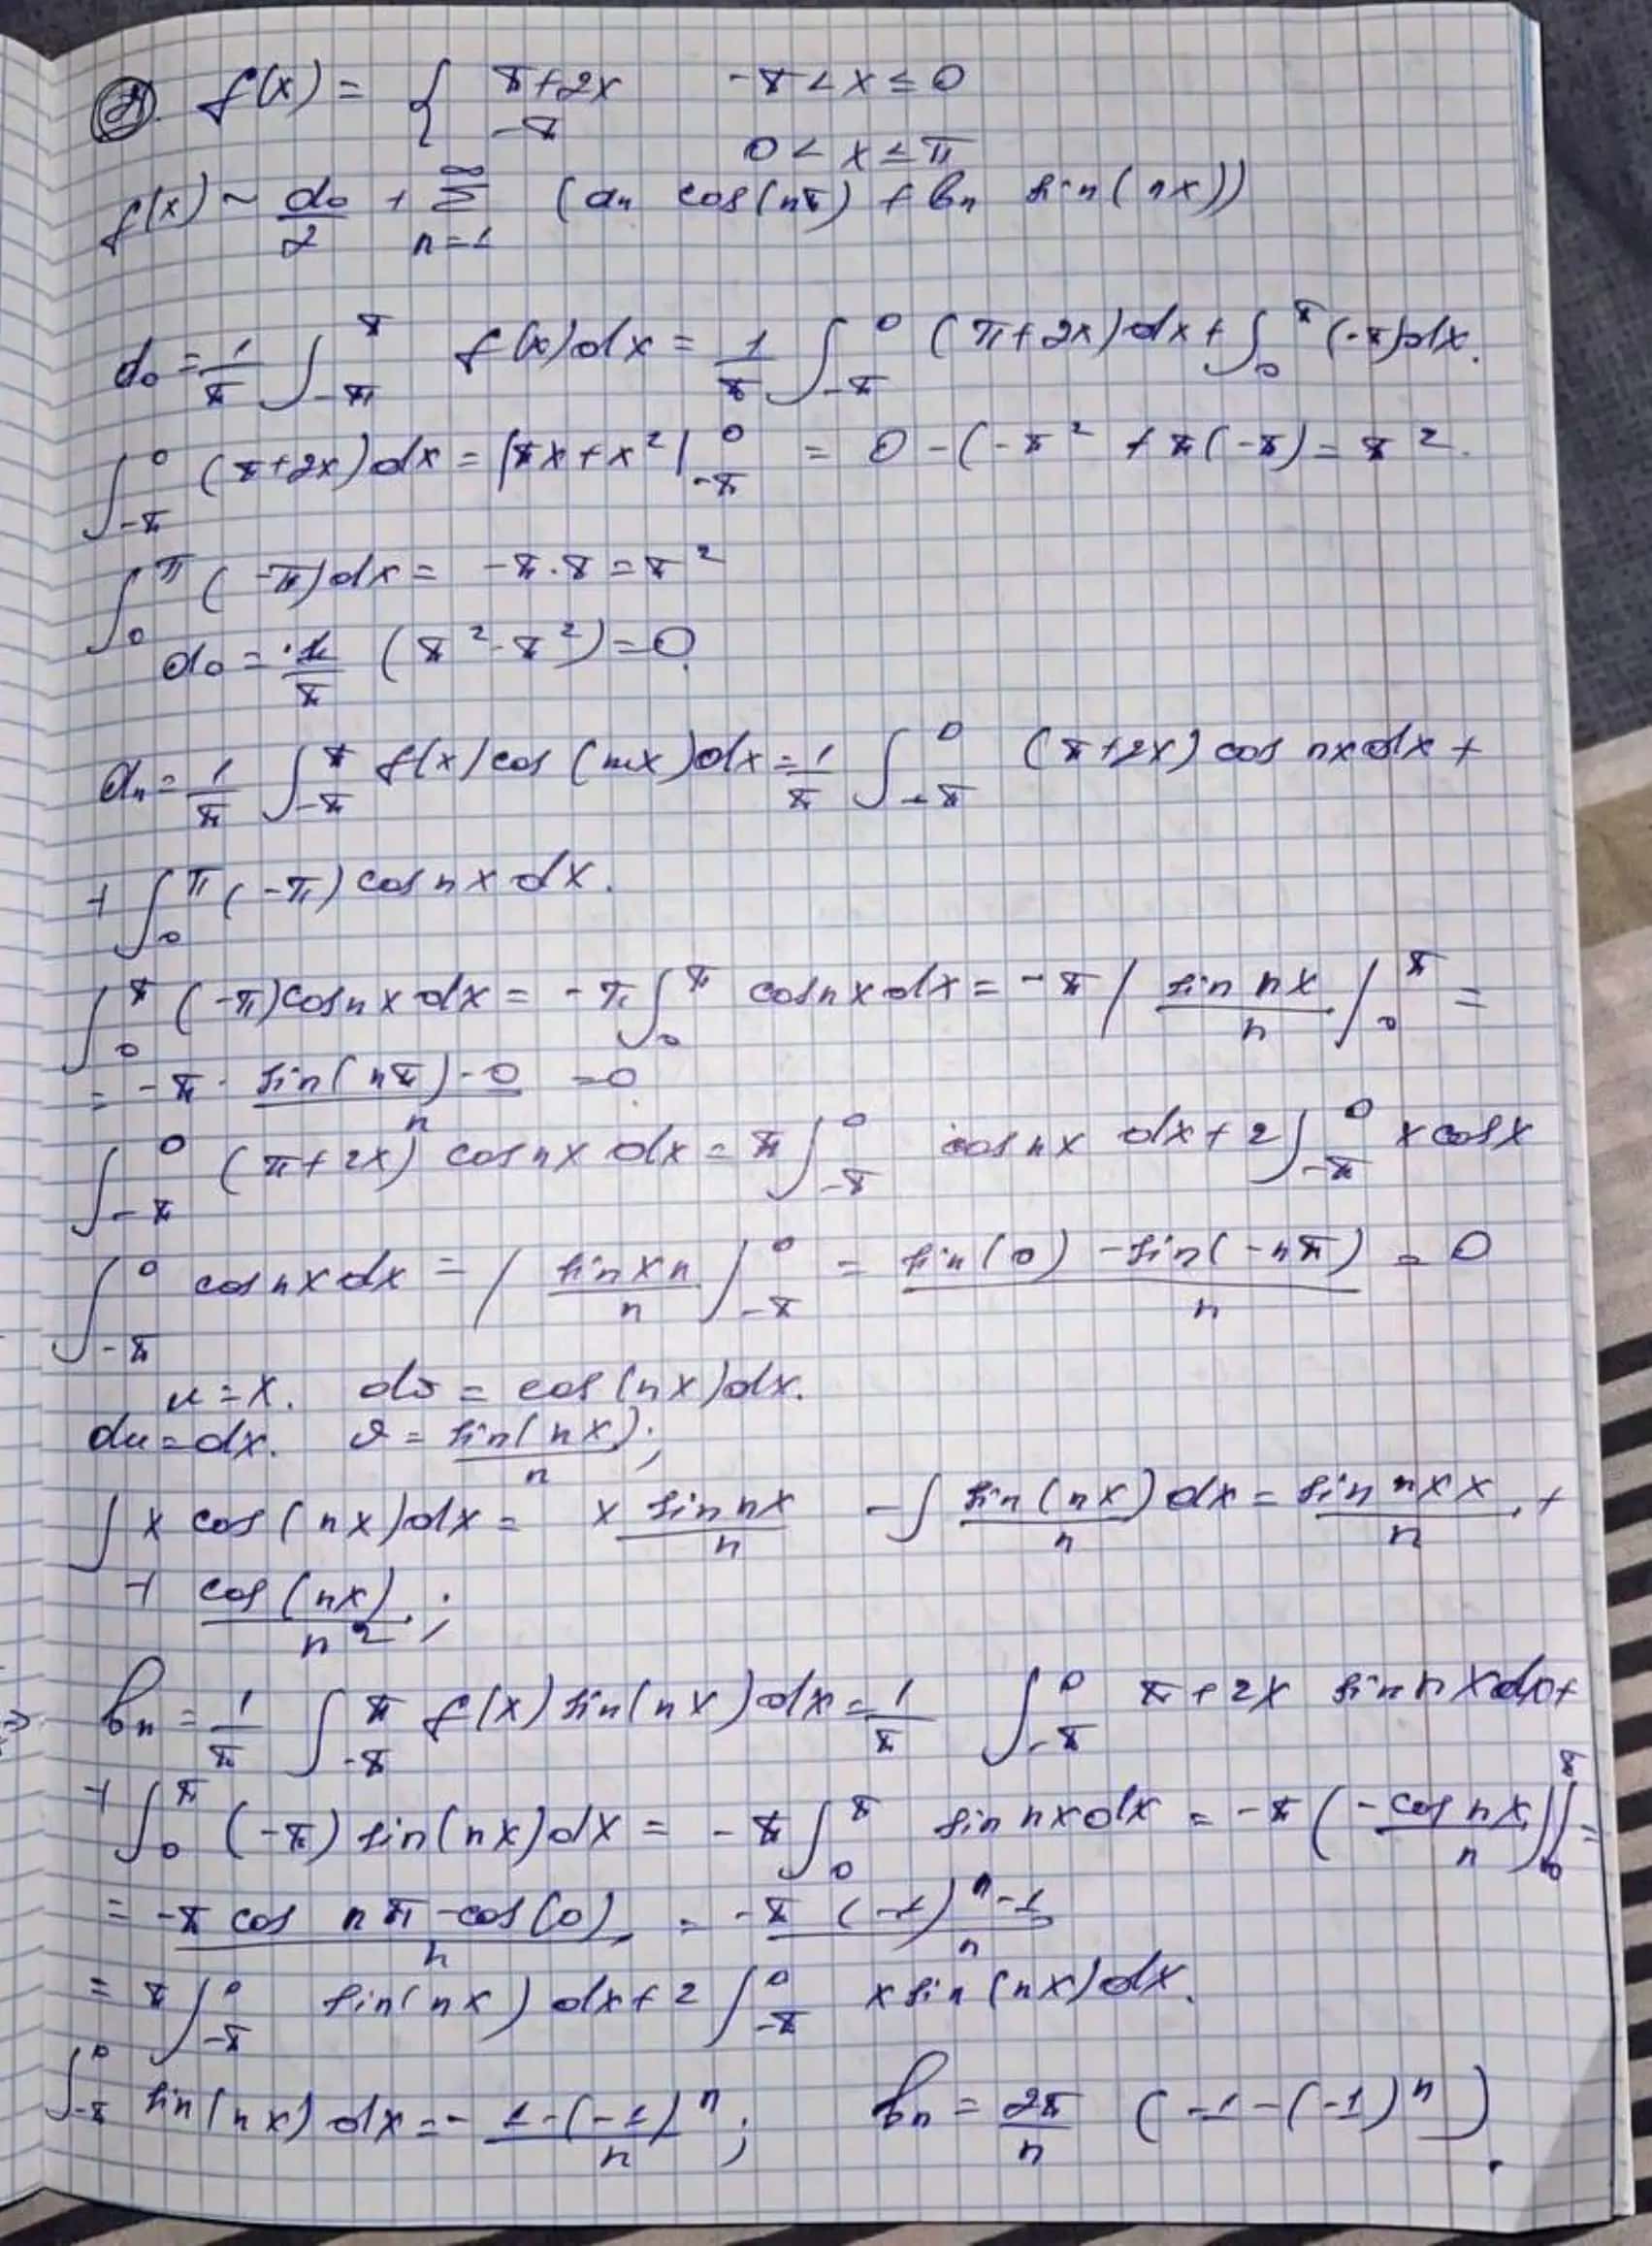 21. f(x) = { π+2x   -π < x ≤ 0
-π   0 < x ≤ π
f(x) ~ a₀/2 + Σ_{n=1}^{∞} (aₙ cos(nπ) + bₙ sin(nx))
a₀ = 1/π ∫_{-π}^{π} f(x)dx = 1/π ∫_{-π}^{0} (π+2x)dx + ∫_{0}^{π} (-π)dx.
∫_{-π}^{0} (π+2x)dx = |πx+x²|_{-π}^{0} = 0 - (-π² + π(-π) = π².
∫_{0}^{π} (-π)dx = -π·π = π²
a₀ = 1/π (π² - π²) = 0
aₙ = 1/π ∫_{-π}^{π} f(x)cos(nx)dx = 1/π ∫_{-π}^{0} (π+2x) cos nxdx +
+ ∫_{0}^{π} (-π) cos nx dx.
∫_{0}^{π} (-π)cos nx dx = -π ∫_{0}^{π} cos nx dx = -π | sin nx / n |_{0}^{π} =
= -π · (sin(nπ) - 0)/n = 0
∫_{-π}^{0} (π+2x) cos nx dx = π ∫_{-π}^{0} cos nx dx + 2 ∫_{-π}^{0} x cos x
∫_{-π}^{0} cos nx dx = | sin xn / n |_{-π}^{0} = (sin(0) - sin(-nπ))/n = 0
u = x.   dv = cos(nx)dx.
du = dx.   v = sin(nx)/n ;
∫ x cos(nx)dx = x sin nx / n - ∫ sin(nx)/n dx = sin nx x / n +
+ cos(nx)/n² ;
bₙ = 1/π ∫_{-π}^{π} f(x) sin(nx)dx = 1/π ∫_{-π}^{0} π+2x sin nxdx +
+ ∫_{0}^{π} (-π) sin(nx)dx = -π ∫_{0}^{π} sin nxdx = -π (-cos nx / n)|_{0}^{π} =
= (-π cos nπ - cos(0))/n = -π ((-1)ⁿ - 1)/n
= π ∫_{-π}^{0} sin(nx) dx + 2 ∫_{-π}^{0} x sin(nx)dx.
∫_{-π}^{0} sin(nx) dx = - (1-(-1)ⁿ)/n ;   bₙ = 2π/n (-1-(-1)ⁿ).